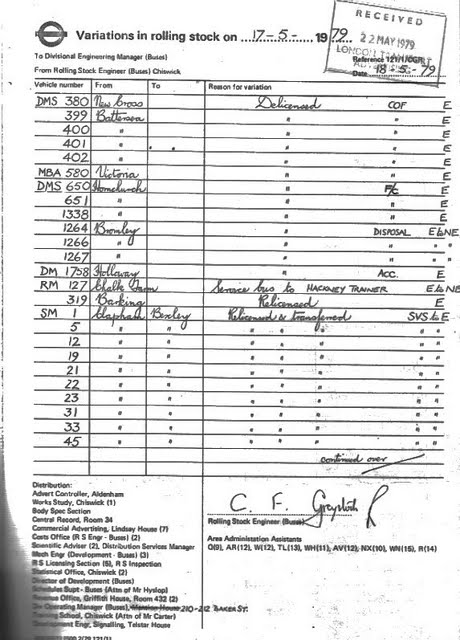 Variations in rolling stock on 17-5- 1979.
RECEIVED
22 MAY 1979
To Divisional Engineering Manager (Buses)
Reference 121/1/OGR/
From Rolling Stock Engineer (Buses) Chiswick
Date 18-5-79
Vehicle number From To Reason for variation
DMS 380 New Cross Delicensed COF E
399 Battersea " " E
400 " " " E
401 " " " E
402 " " " E
MBA 580 Victoria " " E
DMS 650 Hornchurch " F/C E
651 " " " E
1338 " " " E
1264 Bromley " DISPOSAL E & NE
1266 " " " " "
1267 " " " " "
DM 1758 Holloway " ACC. E
RM 127 Chalk Farm Service bus to HACKNEY TRAINER E & NE
319 Barking Relicensed E
SM 1 Clapham Bexley Relicensed & transferred SVS to E
5 " " " " " " "
12 " " " " " " "
19 " " " " " " "
21 " " " " " " "
22 " " " " " " "
23 " " " " " " "
31 " " " " " " "
33 " " " " " " "
45 " " " " " " "
continued over
Distribution:
Advert Controller, Aldenham
Works Study, Chiswick (1)
Body Spec Section
Central Record, Room 34
Commercial Advertising, Lindsey House (7)
Costs Office (R S Engr - Buses) (2)
Scientific Adviser (2), Distribution Services Manager
Mech Engr (Development - Buses) (3)
R S Licensing Section (5), R S Inspection
Statistical Office, Chiswick (2)
Director of Development (Buses)
Schedules Supt - Buses (Attn of Mr Hyslop)
Revenue Office, Griffith House, Room 432 (2)
Operating Manager (Buses), 210-212 BAKER ST.
School, Chiswick (Attn of Mr Carter)
Development Engr, Signalling, Telstar House
C. F.
Rolling Stock Engineer (Buses)
Area Administration Assistants
Q(9), AR(12), W(12), TL(13), WH(11), AV(12), NX(10), WN(15), R(14)